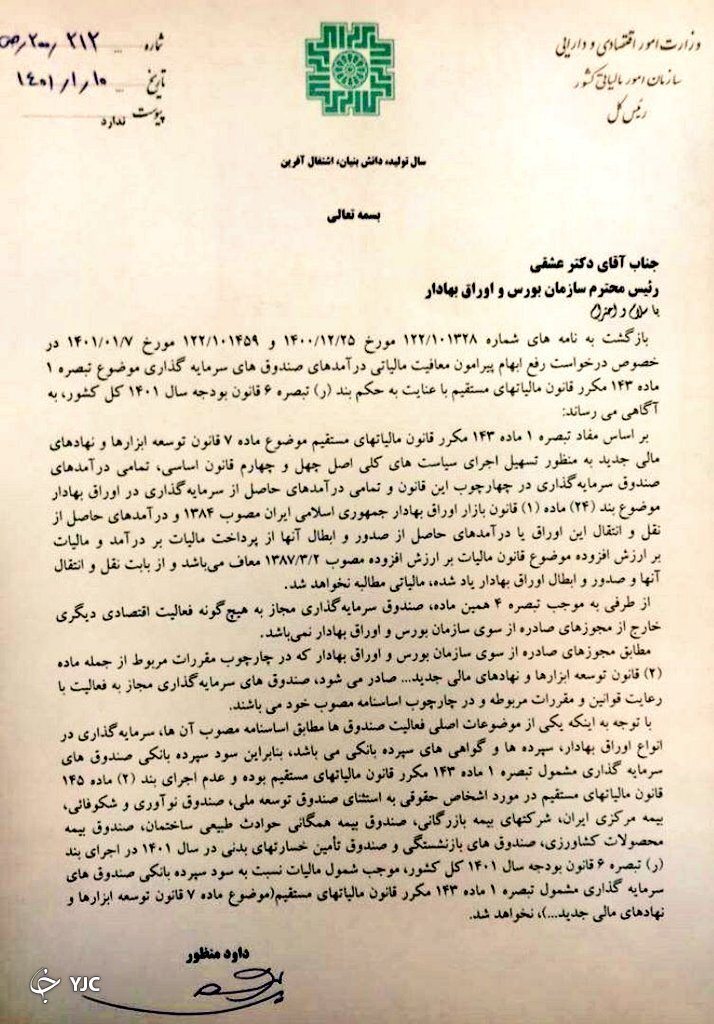 وزارت امور اقتصادی و دارایی
سازمان امور مالیاتی کشور
رئیس کل
شماره ۲۰۰/۲۱۲/ص
تاریخ ۱۴۰۱/۱/۱۰
پیوست ندارد
سال تولید، دانش بنیان، اشتغال آفرین
بسمه تعالی
جناب آقای دکتر عشقی
رئیس محترم سازمان بورس و اوراق بهادار
با سلام و احترام
بازگشت به نامه های شماره ۱۲۲/۱۰۱۳۲۸ مورخ ۱۴۰۰/۱۲/۲۵ و ۱۲۲/۱۰۱۴۵۹ مورخ ۱۴۰۱/۰۱/۷ در
خصوص درخواست رفع ابهام پیرامون معافیت مالیاتی درآمدهای صندوق های سرمایه گذاری موضوع تبصره ۱
ماده ۱۴۳ مکرر قانون مالیاتهای مستقیم با عنایت به حکم بند (ر) تبصره ۶ قانون بودجه سال ۱۴۰۱ کل کشور، به
آگاهی می رساند:
بر اساس مفاد تبصره ۱ ماده ۱۴۳ مکرر قانون مالیاتهای مستقیم موضوع ماده ۷ قانون توسعه ابزارها و نهادهای
مالی جدید به منظور تسهیل اجرای سیاست های کلی اصل چهل و چهارم قانون اساسی، تمامی درآمدهای
صندوق سرمایه‌گذاری در چهارچوب این قانون و تمامی درآمدهای حاصل از سرمایه‌گذاری در اوراق بهادار
موضوع بند (۲۴) ماده (۱) قانون بازار اوراق بهادار جمهوری اسلامی ایران مصوب ۱۳۸۴ و درآمدهای حاصل از
نقل و انتقال این اوراق یا درآمدهای حاصل از صدور و ابطال آنها از پرداخت مالیات بر درآمد و مالیات
بر ارزش افزوده موضوع قانون مالیات بر ارزش افزوده مصوب ۱۳۸۷/۳/۲ معاف می‌باشد و از بابت نقل و انتقال
آنها و صدور و ابطال اوراق بهادار یاد شده، مالیاتی مطالبه نخواهد شد.
از طرفی به موجب تبصره ۴ همین ماده، صندوق سرمایه‌گذاری مجاز به هیچ‌گونه فعالیت اقتصادی دیگری
خارج از مجوزهای صادره از سوی سازمان بورس و اوراق بهادار نمی‌باشد.
مطابق مجوزهای صادره از سوی سازمان بورس و اوراق بهادار که در چارچوب مقررات مربوط از جمله ماده
(۲) قانون توسعه ابزارها و نهادهای مالی جدید... صادر می شود، صندوق های سرمایه‌گذاری مجاز به فعالیت با
رعایت قوانین و مقررات مربوطه و در چارچوب اساسنامه مصوب خود می باشند.
با توجه به اینکه یکی از موضوعات اصلی فعالیت صندوق ها مطابق اساسنامه مصوب آن ها، سرمایه‌گذاری در
انواع اوراق بهادار، سپرده ها و گواهی های سپرده بانکی می باشد، بنابراین سود سپرده بانکی صندوق های
سرمایه گذاری مشمول تبصره ۱ ماده ۱۴۳ مکرر قانون مالیاتهای مستقیم بوده و عدم اجرای بند (۲) ماده ۱۴۵
قانون مالیاتهای مستقیم در مورد اشخاص حقوقی به استثنای صندوق توسعه ملی، صندوق نوآوری و شکوفائی،
بیمه مرکزی ایران، شرکتهای بیمه بازرگانی، صندوق بیمه همگانی حوادث طبیعی ساختمان، صندوق بیمه
محصولات کشاورزی، صندوق های بازنشستگی و صندوق تأمین خسارتهای بدنی در سال ۱۴۰۱ در اجرای بند
(ر) تبصره ۶ قانون بودجه سال ۱۴۰۱ کل کشور، موجب شمول مالیات نسبت به سود سپرده بانکی صندوق های
سرمایه گذاری مشمول تبصره ۱ ماده ۱۴۳ مکرر قانون مالیاتهای مستقیم(موضوع ماده ۷ قانون توسعه ابزارها و
نهادهای مالی جدید...)، نخواهد شد.
داود منظور
YJC